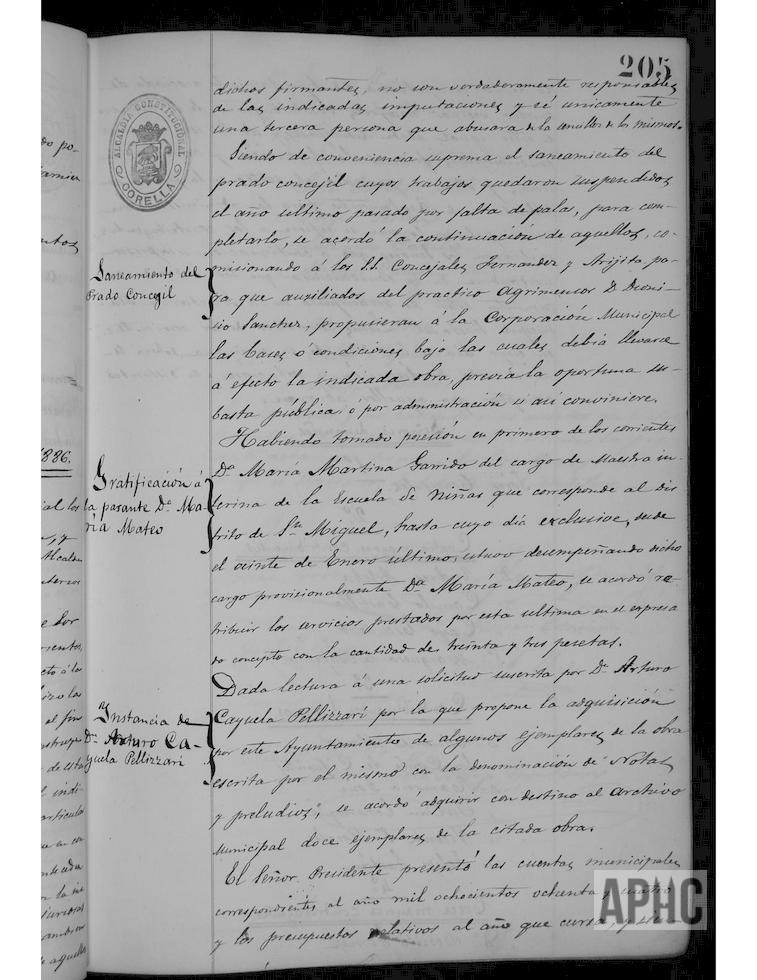 205
dichos firmantes, no son verdaderamente responsables
de las indicadas imputaciones y sí unicamente
una tercera persona que abusara de la sencillez de los mismos.
ALCALDIA CONSTITUCIONAL
CORELLA
Siendo de conveniencia suprema el saneamiento del
prado concejil cuyos trabajos quedaron suspendidos
el año ultimo pasado por falta de palas, para com-
pletarlo, se acordó la continuación de aquellos, co-
Saneamiento del
Prado Concegil
misionando á los S.S. Concejales Fernandez y Arijita pa-
ra que auxiliados del practico agrimensor D. Dioni-
sio Sanchez, propusieran á la Corporación Municipal
las bases ó condiciones bajo las cuales debia llevarse
á efecto la indicada obra, previa la oportuna su-
basta pública, ó por administración si asi conviniere.
Gratificación á
la pasante Dª Ma
ría Mateo
Habiendo tomado posesión en primero de los corrientes
Dª María Martina Garrido del cargo de Maestra in-
terina de la Escuela de niñas que corresponde al dis
trito de Sn Miguel, hasta cuyo dia exclusive, desde
el veinte de Enero último, estuvo desempeñando dicho
cargo provisionalmente Dª María Mateo, se acordó re-
tribuir los servicios prestados por esta ultima en el expresa
do concepto con la cantidad de treinta y tres pesetas.
Instancia de
Dn Arturo Ca-
yuela Pellizzari
Dada lectura á una solicitud suscrita por Dn Arturo
Cayuela Pellizzari por la que propone la adquisición
por este Ayuntamiento de algunos ejemplares de la obra
escrita por el mismo con la denominación de "Notas
y preludios", se acordó adquirir con destino al archivo
Municipal doce ejemplares de la citada obra.
El Señor Presidente presentó las cuentas municipales
correspondientes al año mil ochocientos ochenta y cuatro
y los presupuestos relativos al año que cursa, y
APHC
1886.